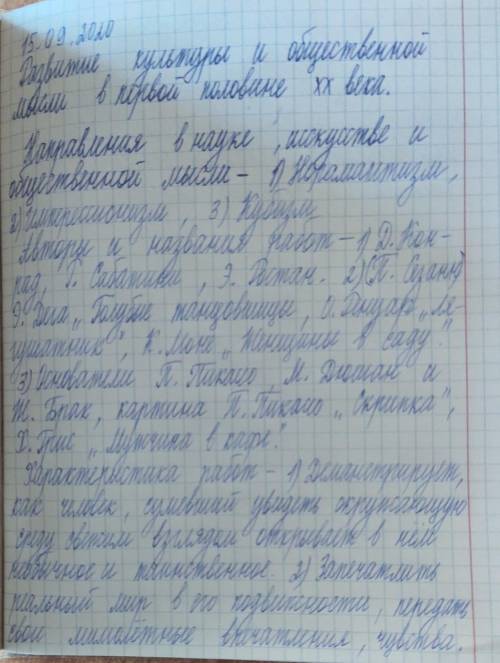 15.09.2020
Развитие культуры и общественной
мысли в первой половине XX века.
Направления в науке, искусстве и
общественной мысли – 1) Неромантизм,
2) Импрессионизм, 3) Кубизм
Авторы и названия работ – 1) Д. Кон-
рад, Г. Сабатини, Э. Ростан. 2) (П. Сезанн)
Э. Дега „Голубые танцовщицы, О. „Ля-
гушатник", К. Моне „Женщины в саду".
3) Основатели П. Пикассо, М. Дюшан и
Ж. Брак, картина П. Пикассо „Скрипка",
Х. Грис „Мужчина в кафе".
Характеристика работ – 1) Демонстрирует,
как человек, сумевший увидеть окружающую
среду свежим взглядом открывает в нём
необычное и таинственное. 2) Запечатлить
реальный мир в его подвижности, передать
свои мимолётные впечатления, чувства.